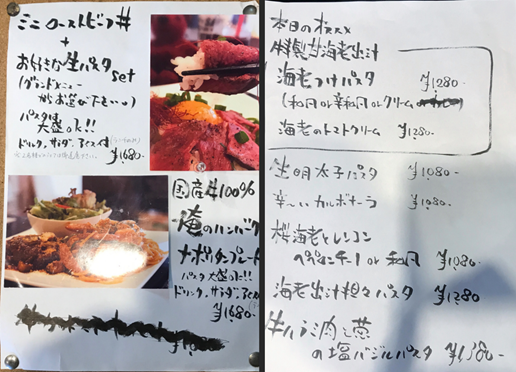 ミニローストビーフ丼
+
お好きな生パスタ
set
(グランドメニュー
からお選び下さい。)
パスタは
大盛ok!!
ドリンク、サラダ、アイス付
¥1680-
国産牛100%
俺のハンバーグ
ナポリタンプレート
パスタ大盛ok!!
ドリンク、サラダ、アイス付
¥1680-
本日のオススメ
特製甘海老出汁
海老つけパスタ ¥1280-
(和風 or 辛和風 or クリーム
海老のトマトクリーム ¥1280-
生明太子パスタ ¥1080-
辛〜いカルボナーラ ¥1080-
桜海老とレンコン
ペペロンチーノ or 和風 ¥1080-
海老出汁担々パスタ ¥1280-
生ハラミ肉と葱
の塩バジルパスタ ¥1380-